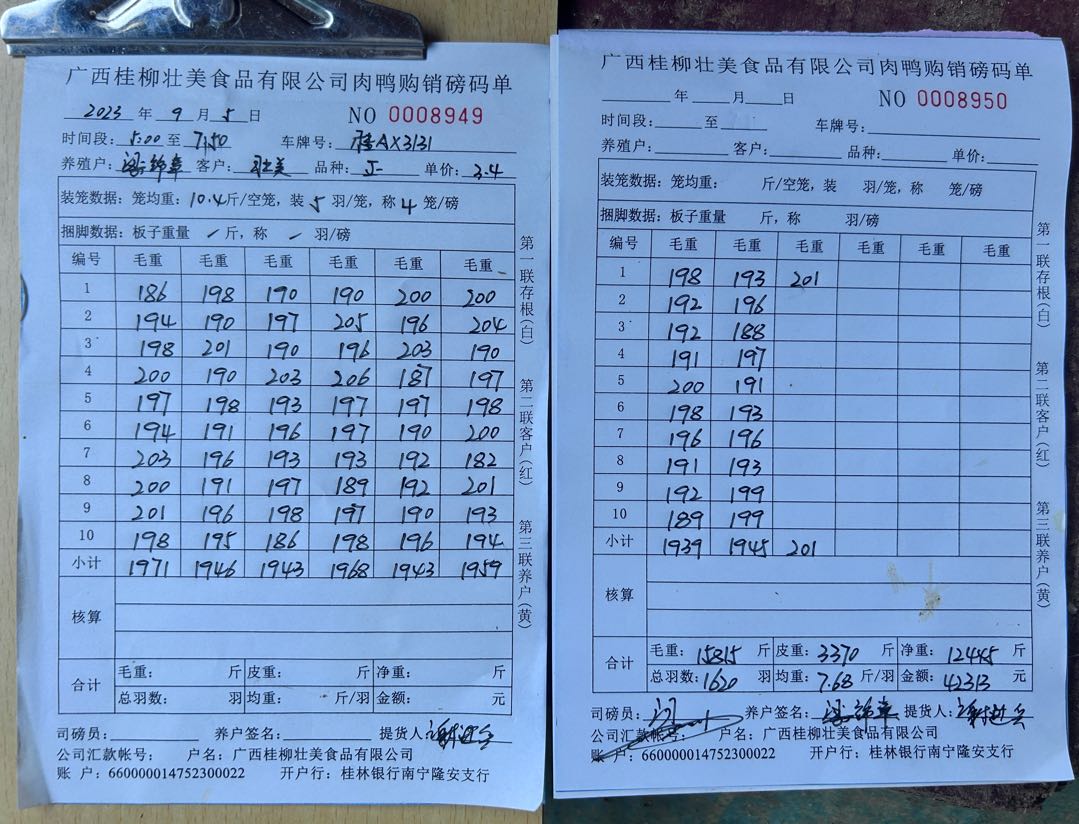 广西桂柳壮美食品有限公司肉鸭购销磅码单
2023 年 9 月 5 日 NO 0008949
时间段: 5:00 至 7:50 车牌号: 桂AX3131
养殖户: 梁锦章 客户: 壮美 品种: J- 单价: 3.4
装笼数据: 笼均重: 10.4斤/空笼, 装 5 羽/笼, 称 4 笼/磅
捆脚数据: 板子重量 / 斤, 称 / 羽/磅
编号 毛重 毛重 毛重 毛重 毛重 毛重
1 186 198 190 190 200 200
2 194 190 197 205 196 204
3 198 201 190 196 203 190
4 200 190 203 206 187 197
5 197 198 193 197 197 198
6 194 191 196 197 190 200
7 203 196 193 193 192 182
8 200 191 197 189 192 201
9 201 196 198 197 190 193
10 198 195 186 198 196 194
小计 1971 1946 1943 1968 1943 1959
核算
合计 毛重: 斤 皮重: 斤 净重: 斤
总羽数: 羽 均重: 斤/羽 金额: 元
司磅员: 养户签名: 提货人:
公司汇款帐号: 户名: 广西桂柳壮美食品有限公司
账 户: 660000014752300022 开户行: 桂林银行南宁隆安支行
第一联存根(白) 第二联客户(红) 第三联养户(黄)
广西桂柳壮美食品有限公司肉鸭购销磅码单
年 月 日 NO 0008950
时间段: 至 车牌号:
养殖户: 客户: 品种: 单价:
装笼数据: 笼均重: 斤/空笼, 装 羽/笼, 称 笼/磅
捆脚数据: 板子重量 斤, 称 羽/磅
编号 毛重 毛重 毛重 毛重 毛重 毛重
1 198 193 201
2 192 196
3 192 188
4 191 197
5 200 191
6 198 193
7 196 196
8 191 193
9 192 199
10 189 199
小计 1939 1945 201
核算
合计 毛重: 15815 斤 皮重: 3370 斤 净重: 12445 斤
总羽数: 1620 羽 均重: 7.68 斤/羽 金额: 42313 元
司磅员: 养户签名: 梁锦章 提货人:
公司汇款帐号: 户名: 广西桂柳壮美食品有限公司
账 户: 660000014752300022 开户行: 桂林银行南宁隆安支行
第一联存根(白) 第二联客户(红) 第三联养户(黄)